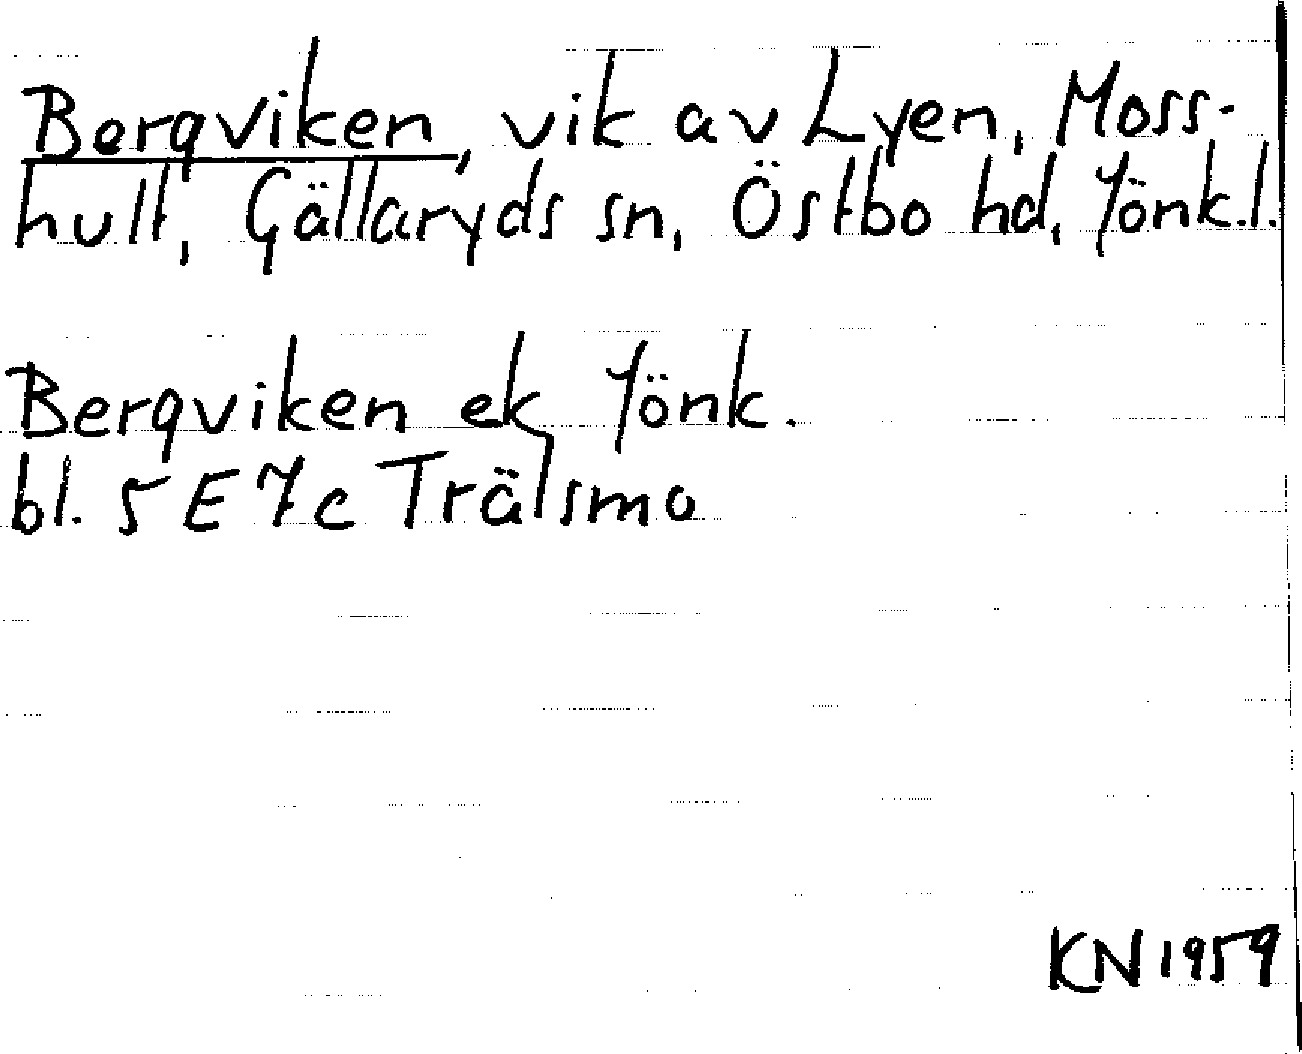 Bergviken, vik av Lyen, Moss-
hult, Gällaryds sn, Östbo hd, Jönk.l.
Bergviken ek, Jönk.
bl. 5 E 7c Trälsmo
KN 1959